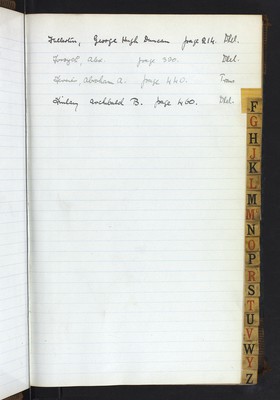 Fullerton, George Hugh Duncan page 214. Dld.
Forsyth, Alex. page 320. Dld.
Abraham A. page 440.
Finlay Archibald B. page 460. Dld.
F
G
H
J
K
L
M
M
N
O
P
R
S
T
U
V
W
Y
Z